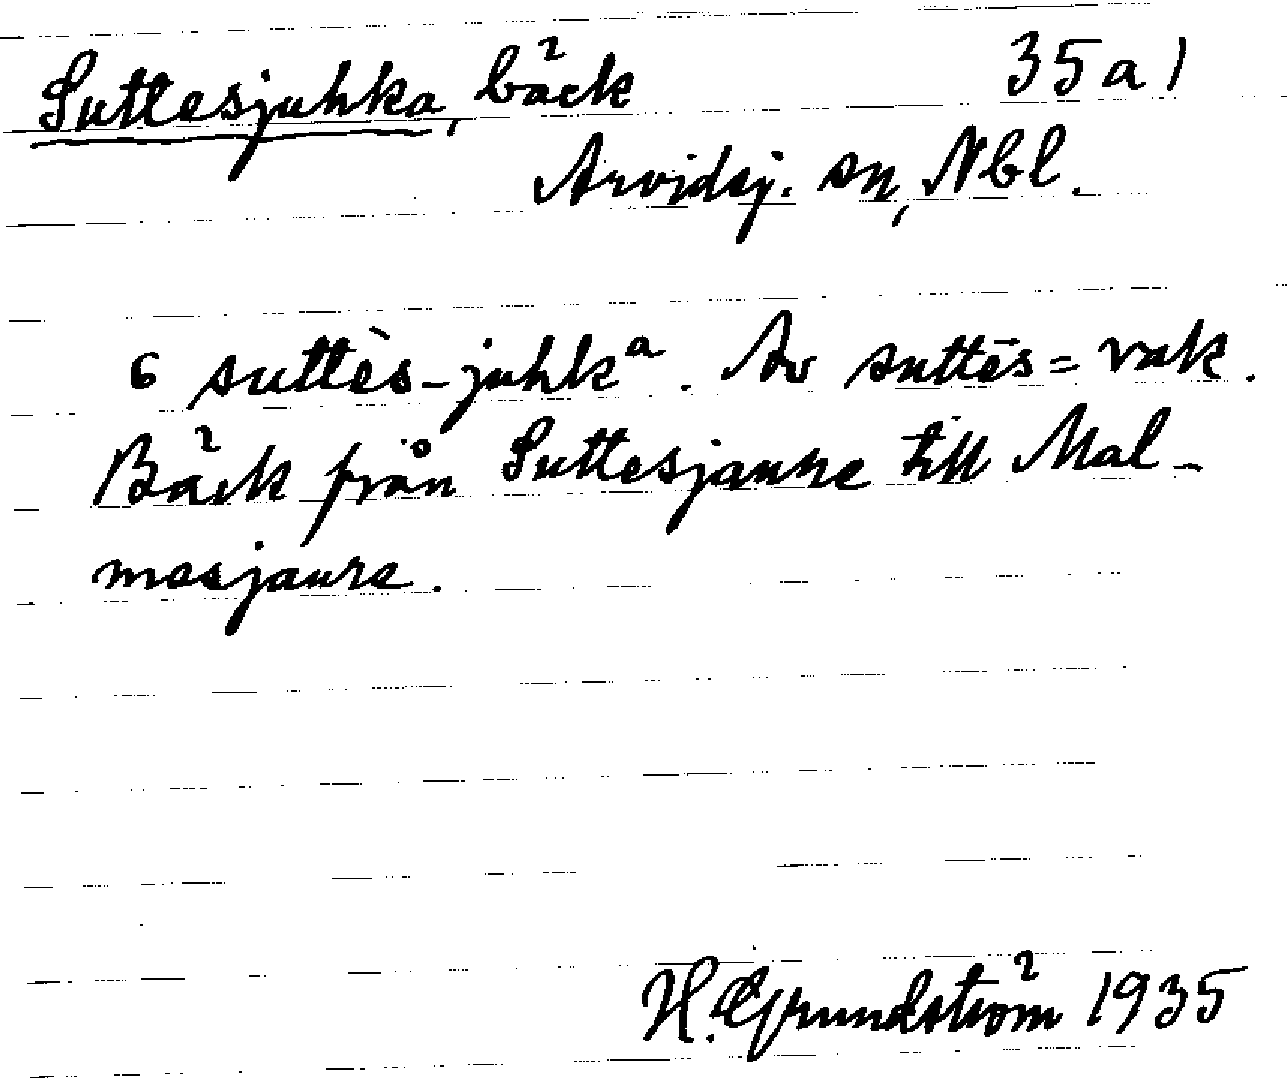 Suttesjuhka, bäck 35 a 1
Arvidsj. sn, Nbl.
6 suttès-juhkᵃ. Av suttēs = vak.
Bäck från Suttesjaure till Mal-
mesjaure.
H. Grundström 1935